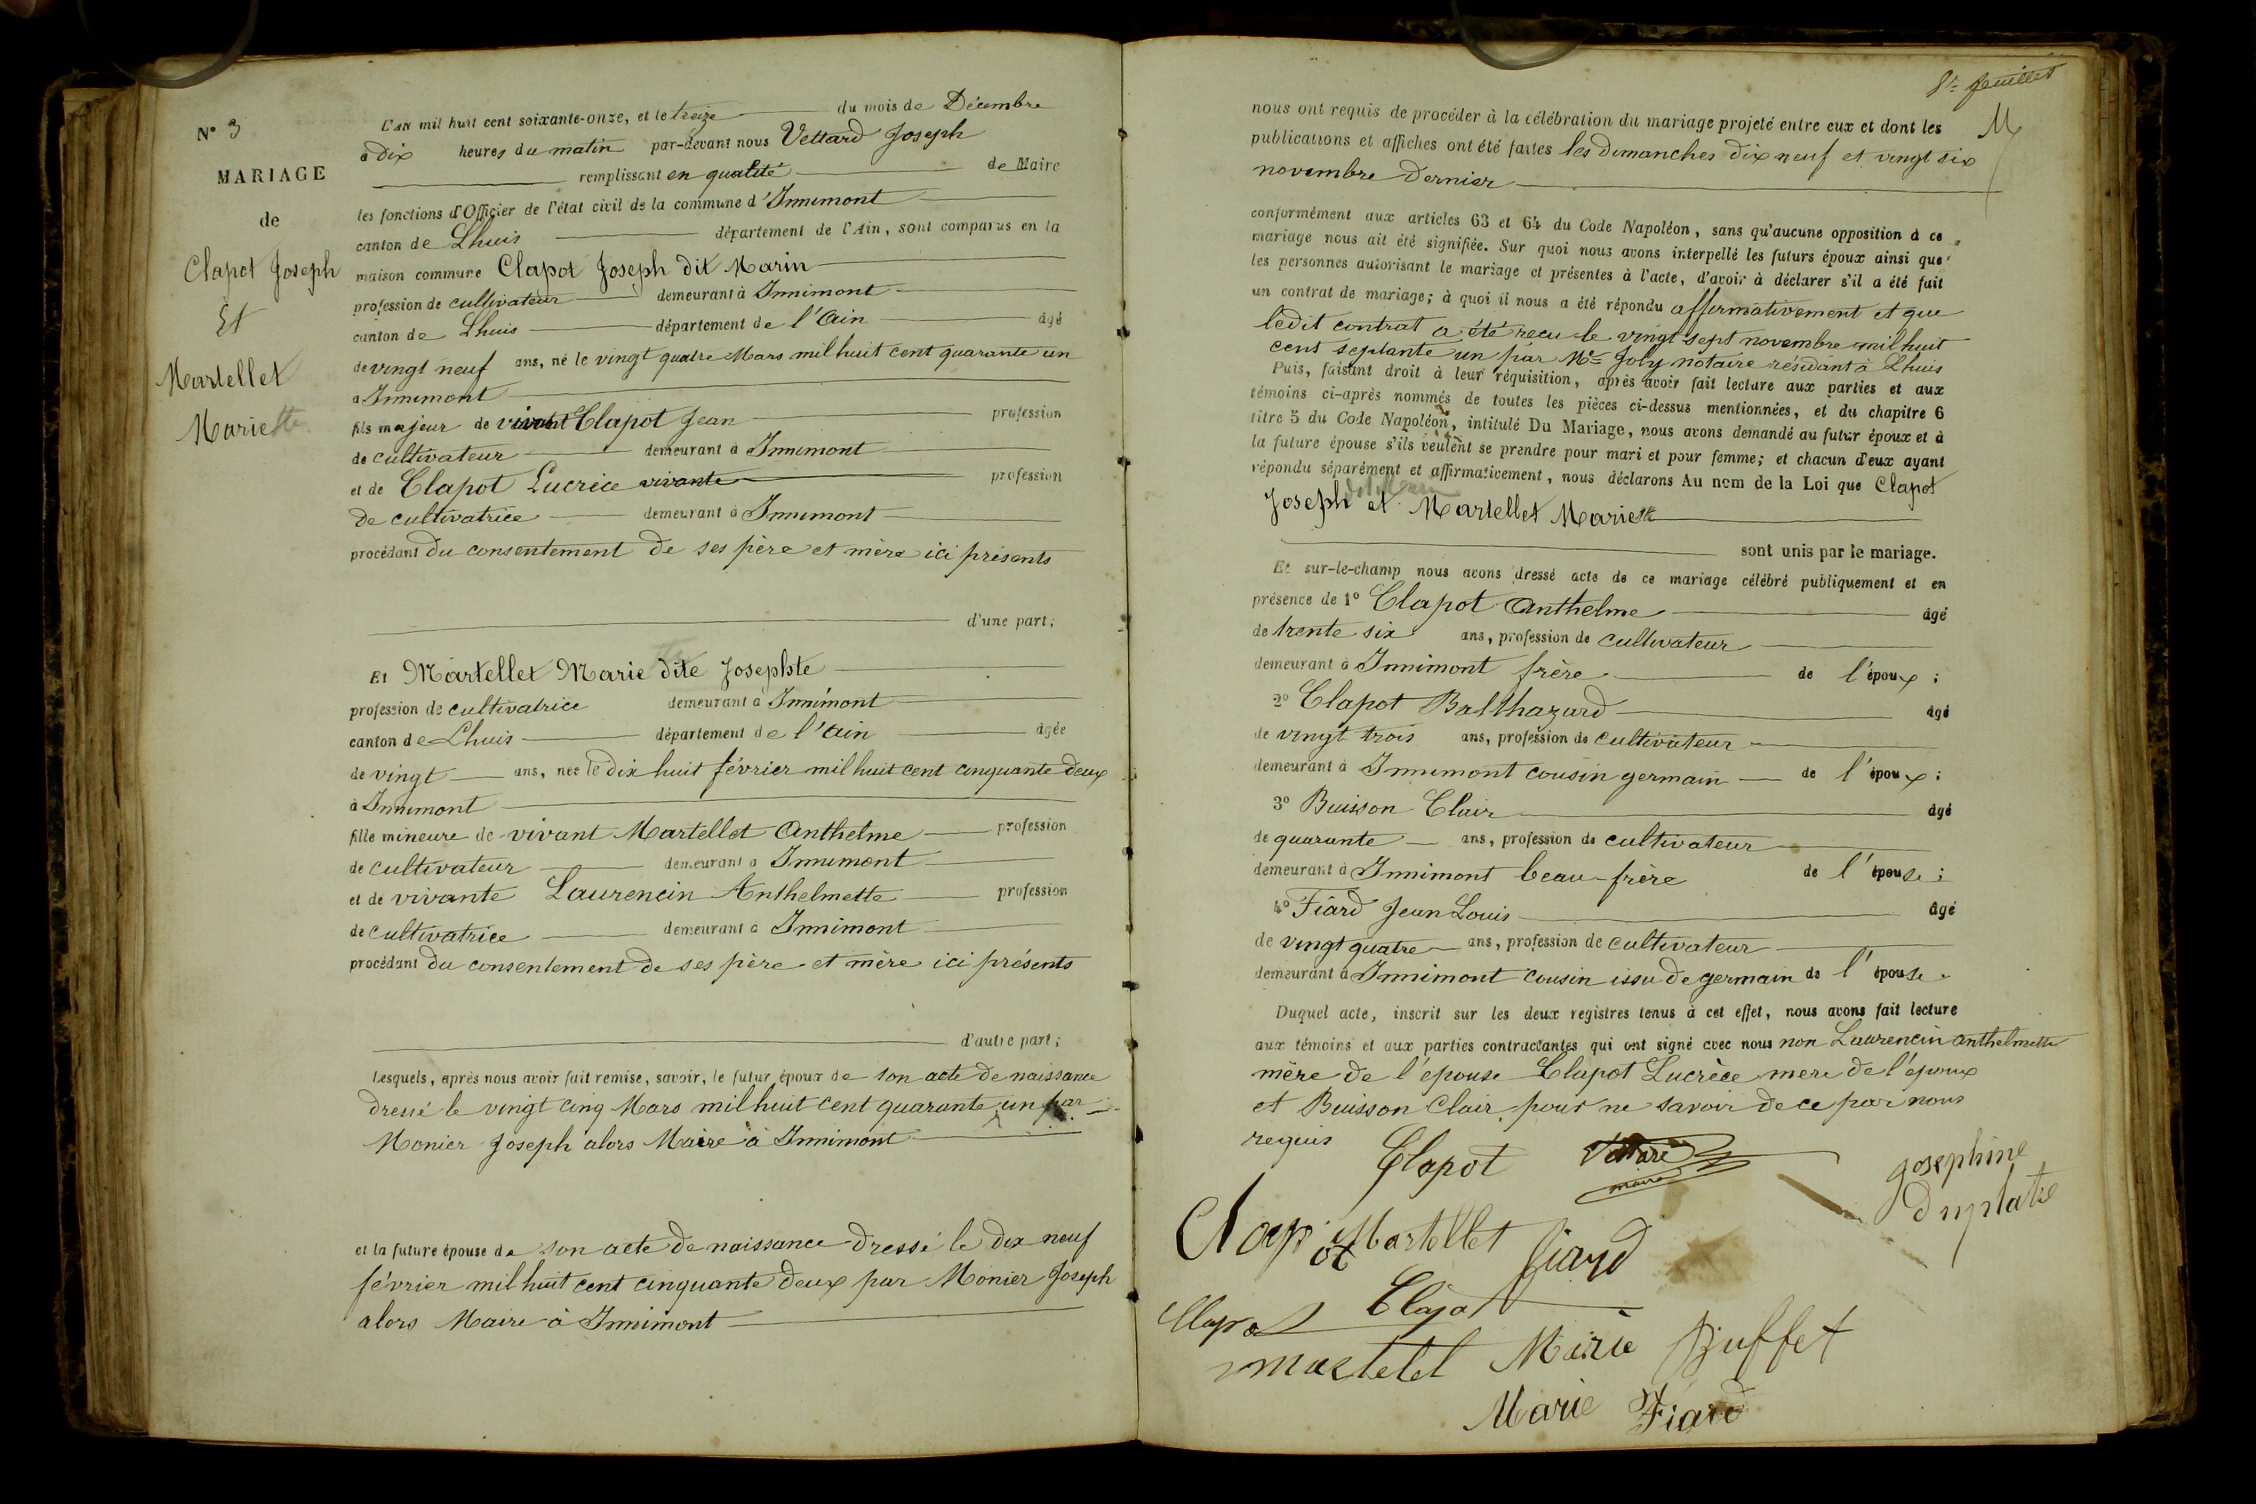 N° 3
MARIAGE
de
Clapot Joseph
Et
Martellet
Mariette
L'an mil huit cent soixante-onze, et le treize du mois de Décembre
à dix heures du matin par-devant nous Vettard Joseph
remplissant en qualité de Maire
les fonctions d'Officier de l'état civil de la commune d'Innimont
canton de Lhuis département de l'Ain, sont comparus en la
maison commune Clapot Joseph dit Marin
profession de cultivateur demeurant à Innimont
canton de Lhuis département de l'Ain âgé
de vingt neuf ans, né le vingt quatre Mars mil huit cent quarante un
à Innimont
fils majeur de vivant Clapot Jean profession
de cultivateur demeurant à Innimont
et de Clapot Lucrèce vivante profession
de cultivatrice demeurant à Innimont
procédant du consentement de ses père et mère ici présents
d'une part;
Et Martellet Marie dite Josephte
profession de cultivatrice demeurant à Innimont
canton de Lhuis département de l'Ain âgée
de vingt ans, née le dix huit février mil huit cent cinquante deux
à Innimont
fille mineure de vivant Martellet Anthelme profession
de cultivateur demeurant à Innimont
et de vivante Laurencin Anthelmette profession
de cultivatrice demeurant à Innimont
procédant du consentement de ses père et mère ici présents
d'autre part;
Lesquels, après nous avoir fait remise, savoir, le futur époux de son acte de naissance
dressé le vingt cinq Mars mil huit cent quarante un par
Monier Joseph alors Maire à Innimont
et la future épouse de son acte de naissance dressé le dix neuf
février mil huit cent cinquante deux par Monier Joseph
alors Maire à Innimont
feuillet
nous ont requis de procéder à la célébration du mariage projeté entre eux et dont les
publications et affiches ont été faites les dimanches dix neuf et vingt six
novembre dernier
conformément aux articles 63 et 64 du Code Napoléon, sans qu'aucune opposition à ce
mariage nous ait été signifiée. Sur quoi nous avons interpellé les futurs époux ainsi que
les personnes autorisant le mariage et présentes à l'acte, d'avoir à déclarer s'il a été fait
un contrat de mariage; à quoi il nous a été répondu affirmativement et que
ledit contrat a été recu le vingt sept novembre mil huit
cent septante un par Me Joly notaire résidant à Lhuis
Puis, faisant droit à leur réquisition, après avoir fait lecture aux parties et aux
témoins ci-après nommés de toutes les pièces ci-dessus mentionnées, et du chapitre 6
titre 5 du Code Napoléon, intitulé Du Mariage, nous avons demandé au futur époux et à
la future épouse s'ils veulent se prendre pour mari et pour femme; et chacun d'eux ayant
répondu séparément et affirmativement, nous déclarons Au nom de la Loi que Clapot
Joseph et Martellet Mariette
sont unis par le mariage.
Et sur-le-champ nous avons dressé acte de ce mariage célébré publiquement et en
présence de 1° Clapot Anthelme âgé
de trente six ans, profession de cultivateur
demeurant à Innimont frère de l'époux;
2° Clapot Balthazard âgé
de vingt trois ans, profession de cultivateur
demeurant à Innimont cousin germain de l'époux;
3° Buisson Clair âgé
de quarante ans, profession de cultivateur
demeurant à Innimont beau-frère de l'épouse;
4° Fiard Jean Louis âgé
de vingt quatre ans, profession de cultivateur
demeurant à Innimont cousin issu de germain de l'épouse.
Duquel acte, inscrit sur les deux registres tenus à cet effet, nous avons fait lecture
aux témoins et aux parties contractantes qui ont signé avec nous non Laurencin anthelmette
mère de l'épouse Clapot Lucrèce mere de l'époux
et Buisson Clair pour ne savoir de ce par nous
requis
Clapot Vettard
maire
Josephine
Duplatre
Clapot Martellet Fiard
Clapot Clapot
martelet Marie Buffet
Marie Fiard